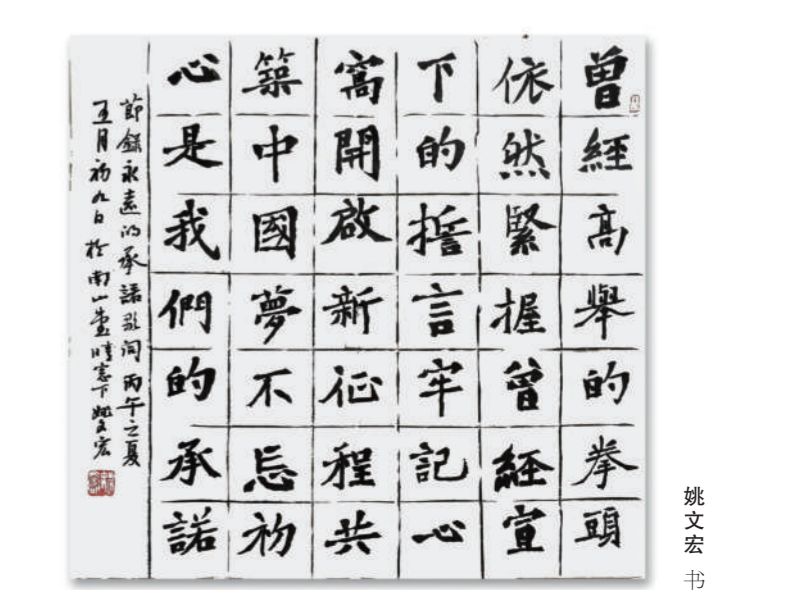 曾經高舉的拳頭
依然緊握曾經宣
下的擔言牢記心
窩開啟新征程共
築中國夢不忘初
心是我們的承諾
節錄永遠的承諾歌詞丙午之夏
五月初九日於南山堂晴窓下姚文宏
姚文宏 书